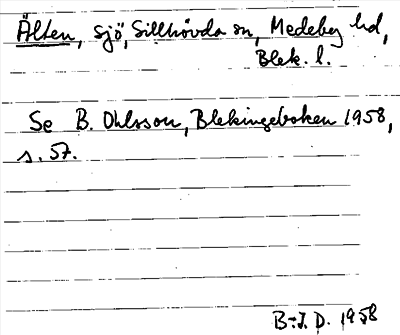 Älten, sjö, Sillhövda sn, Medeby hd,
Blek. l.
Se B. Ohlsson, Blekingeboken 1958,
s. 57.
B-I. D. 1958